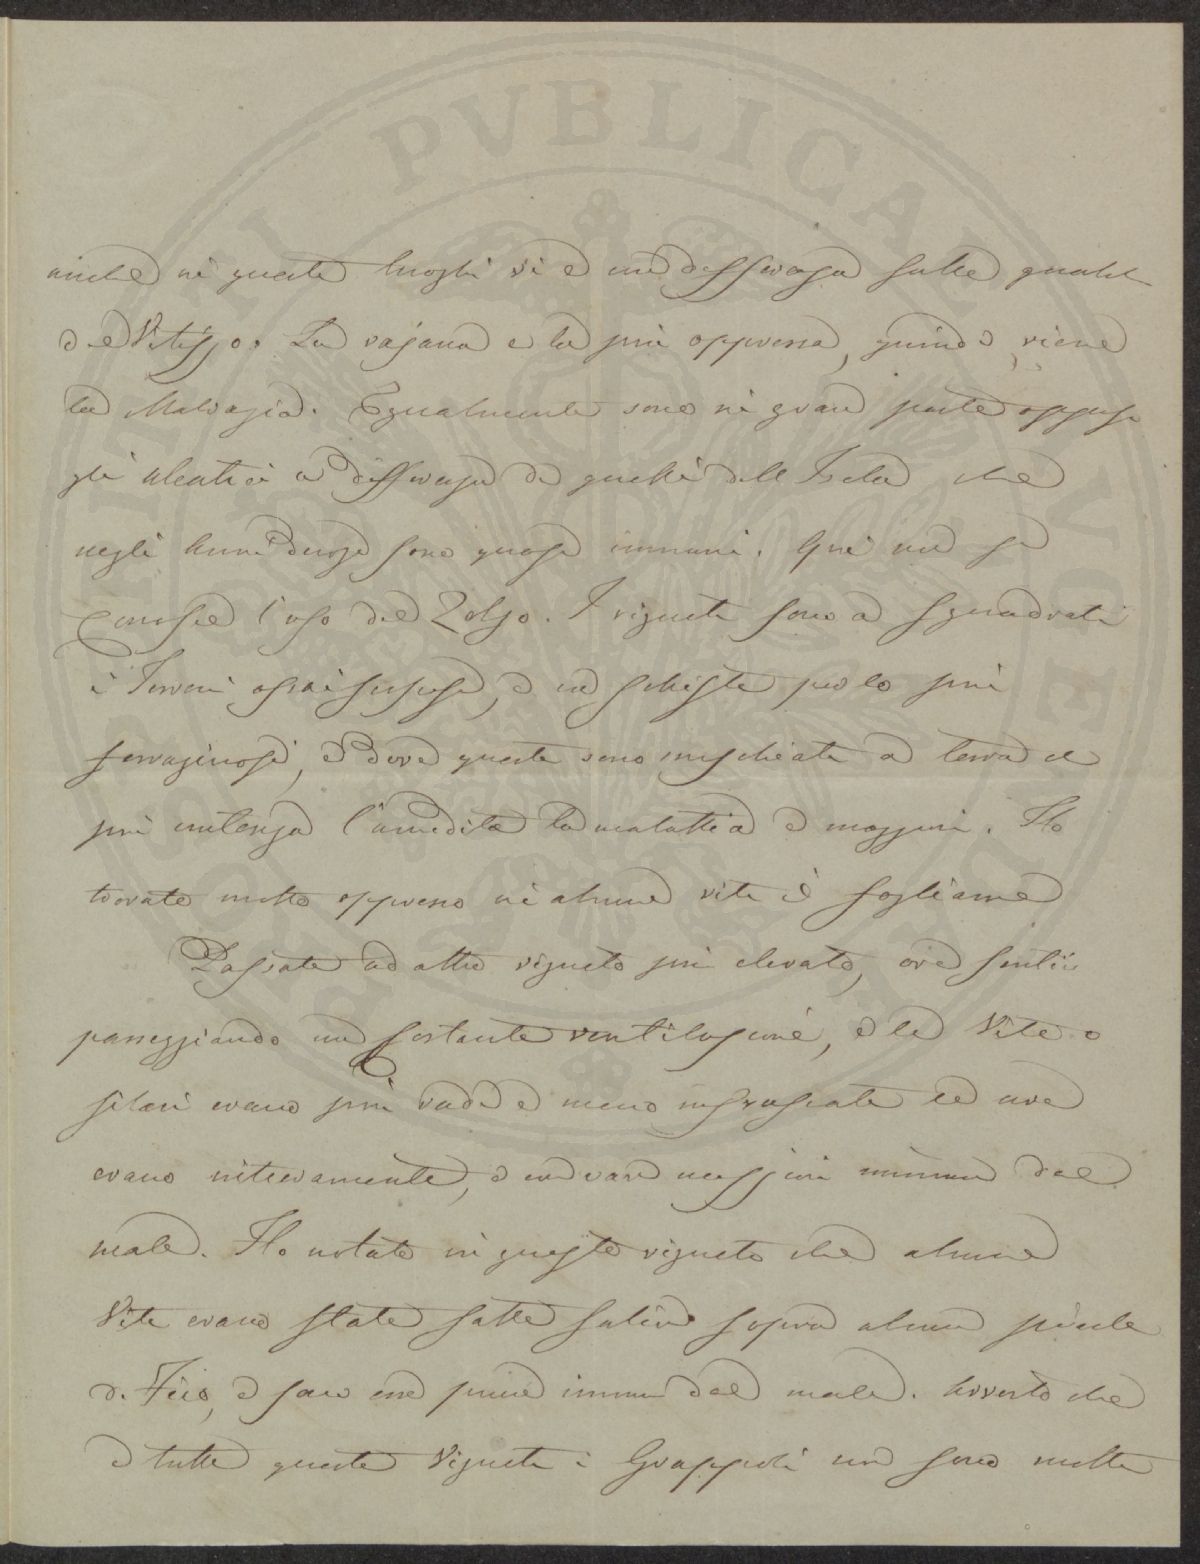 anche in queste luoghi vi è una differenza sulle qualità
del Vitizzo. La vajana è la più oppressa, quindi viene
la Malvagia. Egualmente sono in gran parte oppressi
gli aleatici a differenza di quelli dell Isola che
negli anni scorsi sono quasi immuni. Qui non si
conosce l'uso del Zolfo. I vigneti sono a squadrati
i Terreni assai scoscesi, e a schiste per lo più
ferruginosi, e Dove queste sono mischiate a terra e
più intensa l'umidità la malattia è maggiore. Ho
trovato molto oppresso in alcune vite il fogliame
Passate ad altro vigneto più elevato, ove sentii
passeggiando una costante ventilazione, e le Vite o
filari erano più rade e meno ingrasciate le uve
erano interamente, e
male. Ho notato in questo vigneto che alcune
Vite erano state fatte salire sopra alcune piante
di Fico, e sono esse pure immuni dal male. Avverto che
in tutte queste Vigneti i Grappoli non sono molte
PVBLICAE